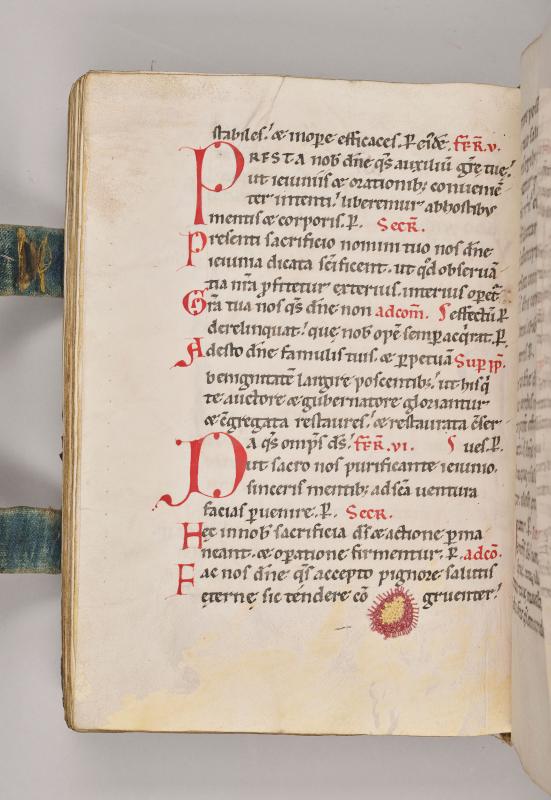 stabiles. & mop̄e efficaces. P. eūdē. FR̄. R̄. V.
PRESTA nob̄ dn̄e q̄s auxiliū gr̄e tuę.
ut ieiuniis & orationib; conueniē-
ter intenti. liberemur ab hostibus
mentis & corporis. P. Secr̄.
Presenti sacrificio nomini tuo nos dn̄e
ieiunia dicata sc̄ificent. ut q̄d obseruā-
tia nr̄a p̄fitetur exterius. interius op̄et̄.
Gr̄a tua nos q̄s dn̄e non adcom̄. S effectū P.
derelinquat. quę nob̄ opē semp̄ acq̄rat. P.
Adesto dn̄e famulis tuis. & p̄petuā Sup pp̄.
benignitatē largire poscentib;. ut his q̄
te auctore & gubernatore gloriantur
& c̄gregata restaures. & restaurata c̄ser-
Da q̄s omps̄ ds̄. FR̄. R̄. VI. S ues. P.
ut sacro nos purificante ieiunio.
sinceris mentib; ad sc̄a uentura
facias p̄uenire. P. Secr.
Hec in nob̄ sacrificia ds̄ & actione p̄ma-
neant. & op̄atione firmentur. P. adcō.
Fac nos dn̄e q̄s accepto pignore salutis
ęternę sic tendere cō gruenter.